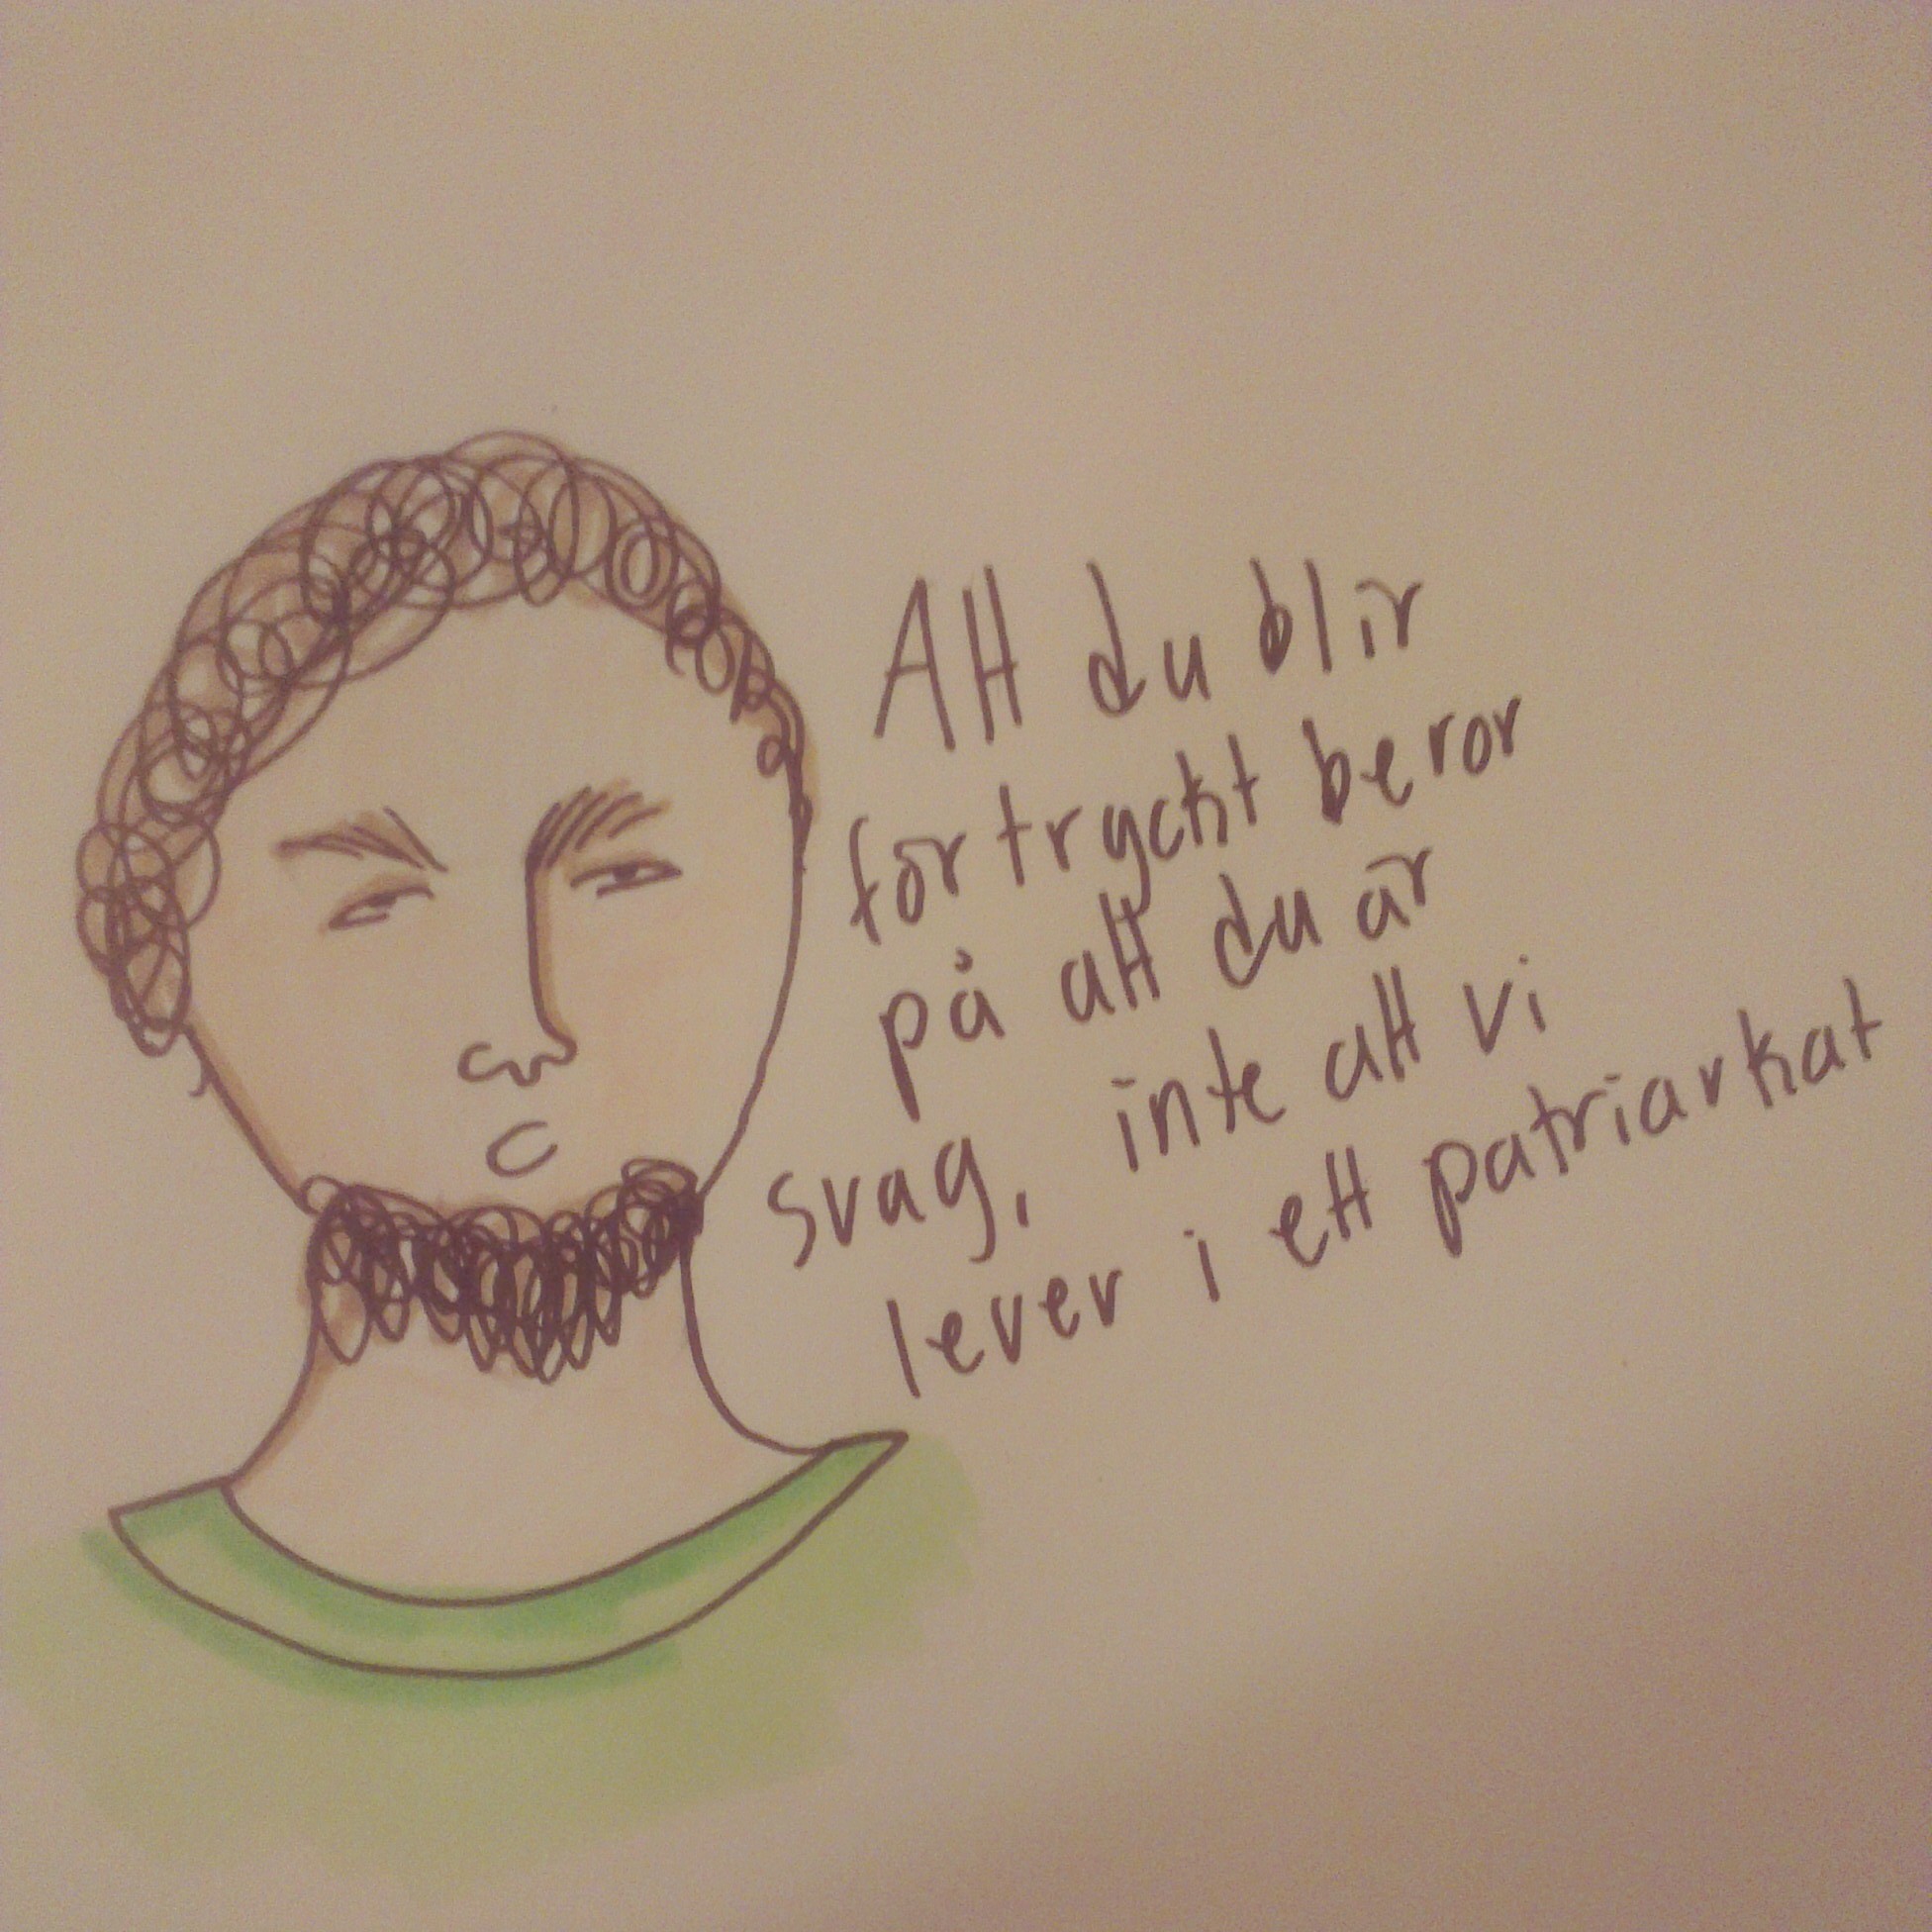 Att du blir
förtryckt beror
på att du är
svag, inte att vi
lever i ett patriarkat